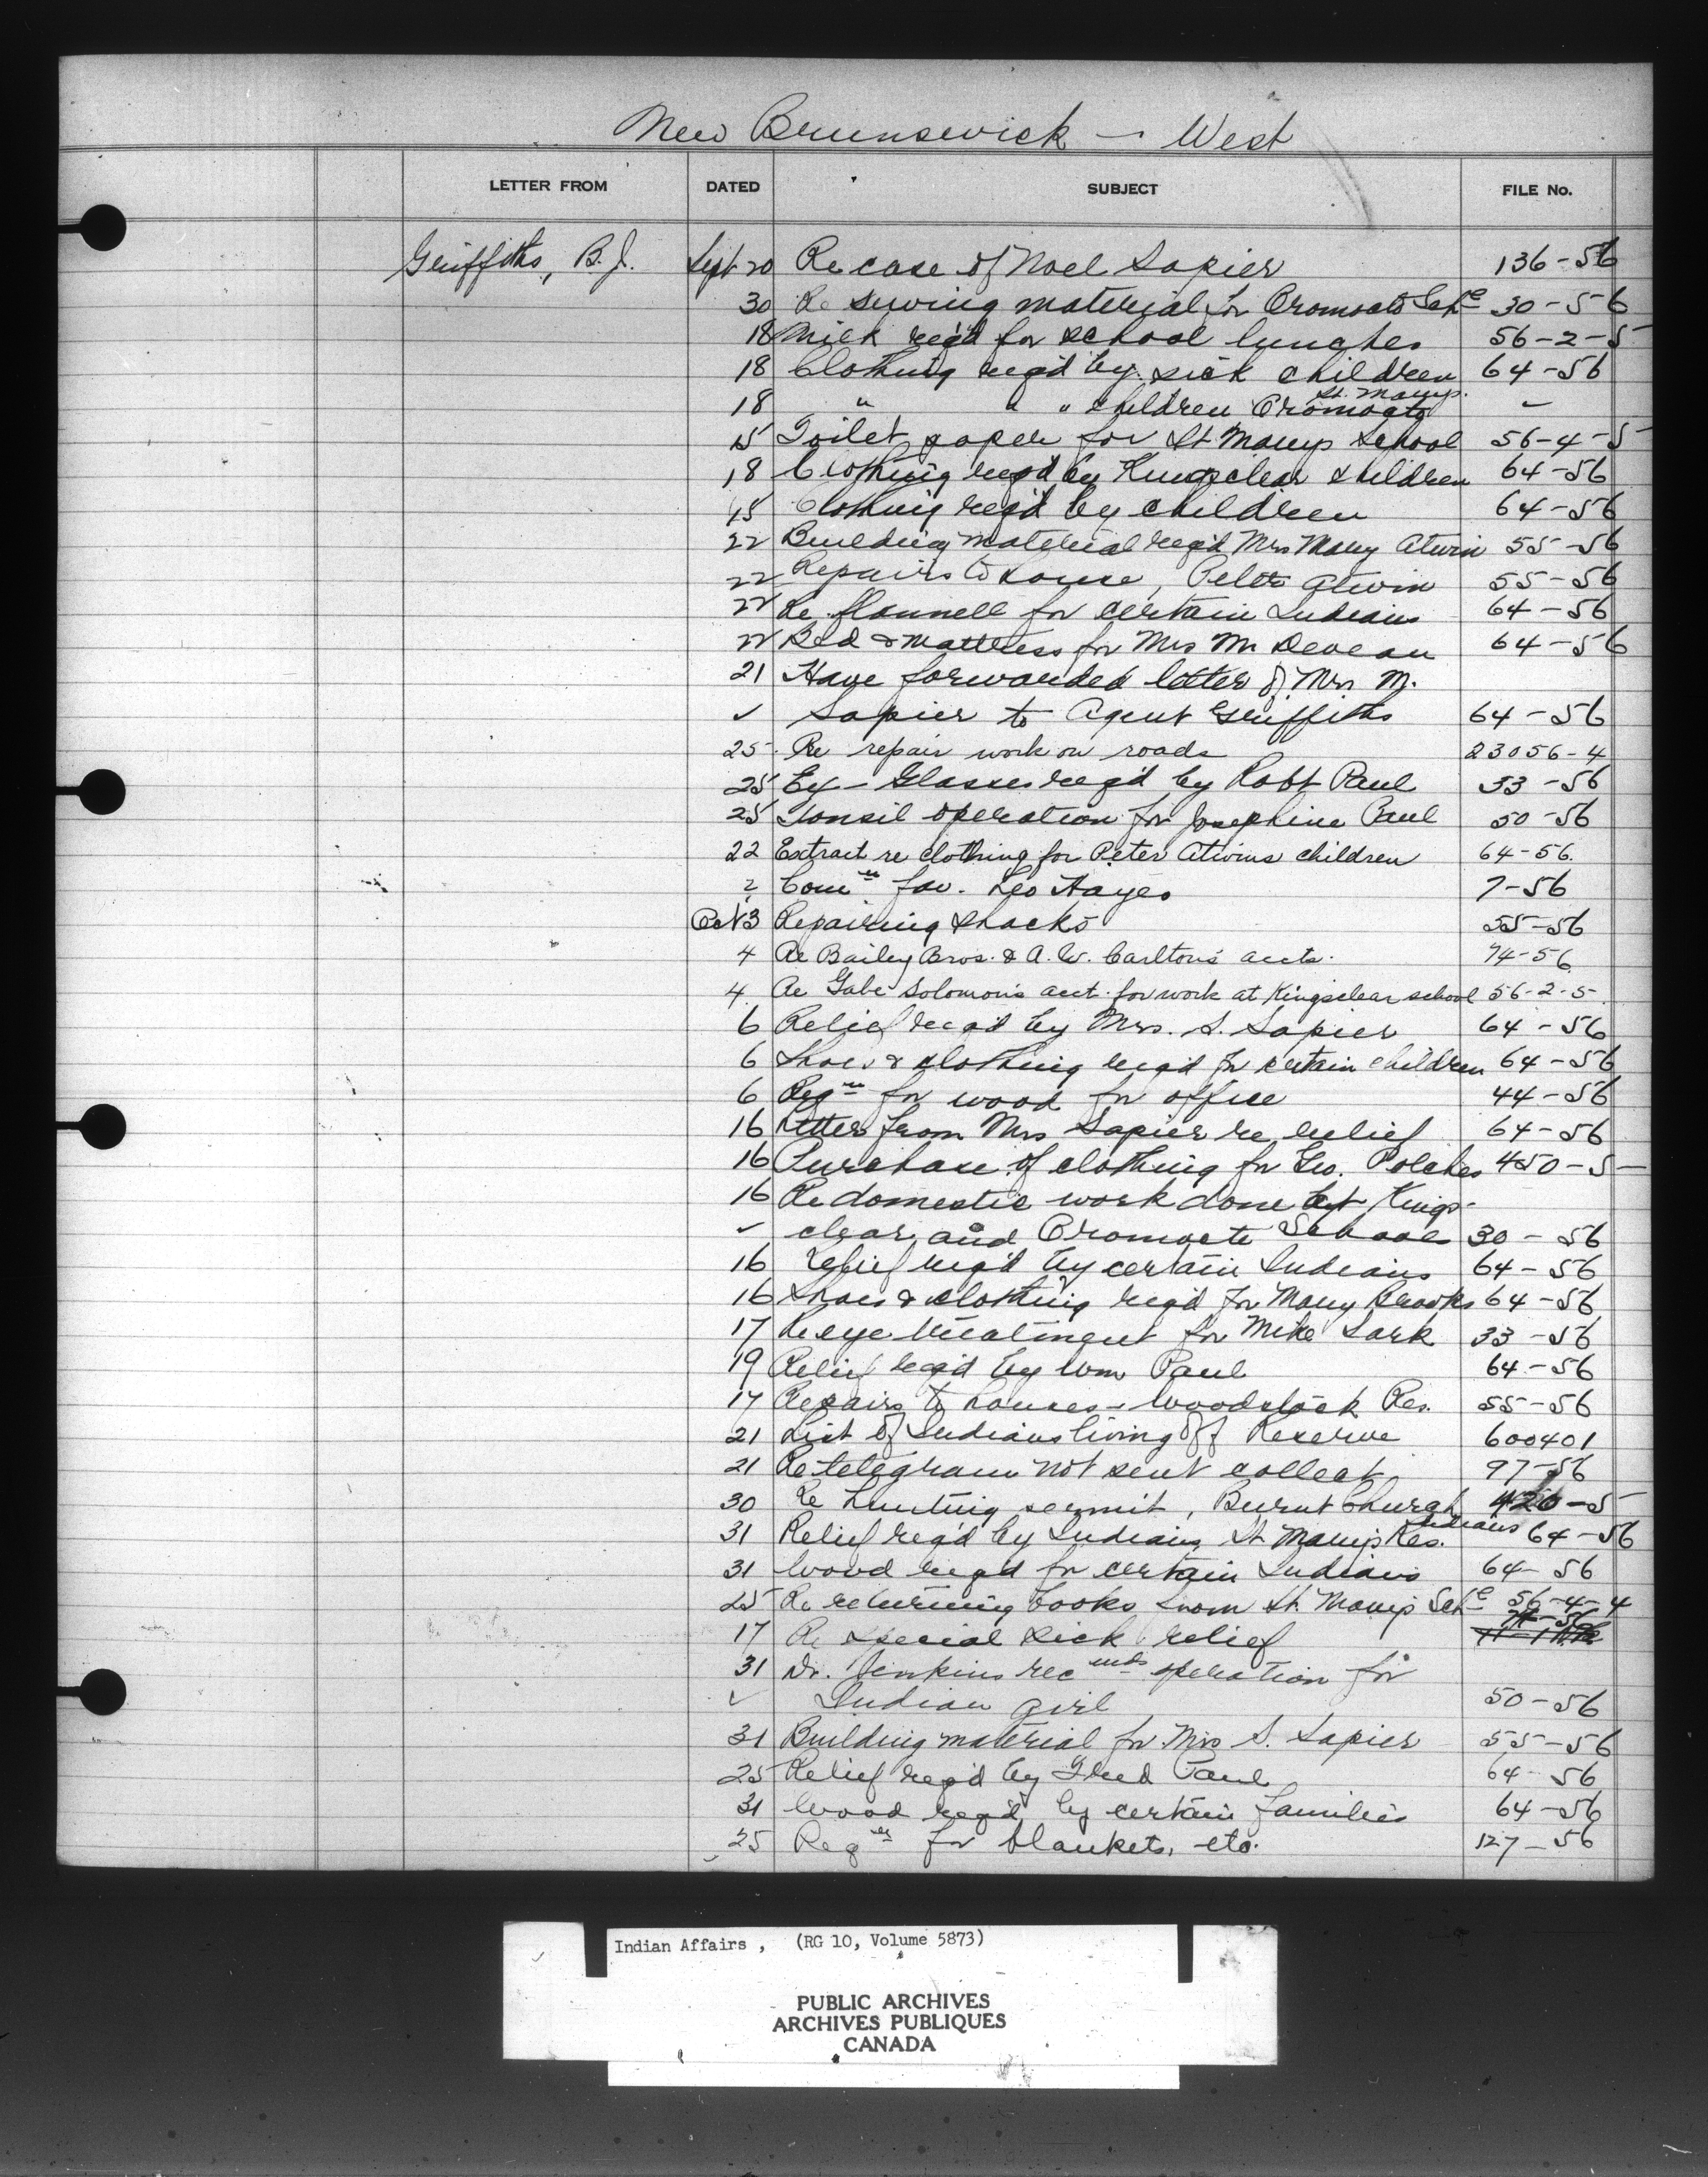 New Brunswick - West
LETTER FROM DATED SUBJECT FILE No.
Griffiths, B.J. Sept 20 Re case of Noel Sapier 136-56
30 Re sewing material for Oromocto Sch^l 30-56
18 Milk req'd for school lunches 56-2-5
18 Clothing req'd by sick children 64-56
18 " " " children Oromocto St. Marys.
15 Toilet paper for St Marys School 56-4-5
18 Clothing req'd by Kingsclear children 64-56
15 Clothing req'd by children 64-56
22 Building material req'd Mrs Mary Atwin 55-56
22 Repairs to house, Peter Atwin 55-56
22 Re flannell for certain Indians 64-56
22 Bed & mattress for Mrs M. Deveau 64-56
21 Have forwarded letter of Mrs M.
✓ Sapier to Agent Griffiths 64-56
25 Re repair work on roads 23056-4
25 Ey- Glasses req'd by Robt Paul 33-56
25 Tonsil operation for Josephine Paul 50-56
22 Extract re clothing for Peter Atwins children 64-56.
2 Com^n fav. Leo Hayes 7-56
Oct 3 Repairing shacks 55-56
4 Re Bailey Bros. & A. W. Carlton's accts. 74-56
4 Re Gabe Solomon's acct. for work at Kingsclear school 56-2-5
6 Relief req'd by Mrs. S. Sapier 64-56
6 Shoes & clothing req'd for certain children 64-56
6 Req^n for wood for office 44-56
16 Letter from Mrs Sapier re relief 64-56
16 Purchase of clothing for Geo. Polches 450-5
16 Re domestic work done at Kings-
✓ clear and Oromocto Schools 30-56
16 Relief req'd by certain Indians 64-56
16 Shoes & clothing req'd for Mary Brooks 64-56
17 Re eye treatment for Mike Sark 33-56
19 Relief req'd by Wm Paul 64-56
17 Repairs to houses - Woodstock Res. 55-56
21 List of Indians living off Reserve 600401
21 Re telegram not sent collect 97-56
30 Re hunting permit, Burnt Church Indians 420-5
31 Relief req'd by Indians St Mary's Res. 64-56
31 Wood req'd for certain Indians 64-56
25 Re returning books from St. Mary's Sch^l 56-4-4
17 Re special sick relief
31 Dr. Jenkins rec^mds operation for
✓ Indian girl 50-56
31 Building material for Mrs S. Sapier 55-56
25 Relief req'd by Fred Paul 64-56
31 Wood req'd by certain families 64-56
25 Req^n for blankets, etc. 127-56
Indian Affairs, (RG 10, Volume 5873)
PUBLIC ARCHIVES
ARCHIVES PUBLIQUES
CANADA